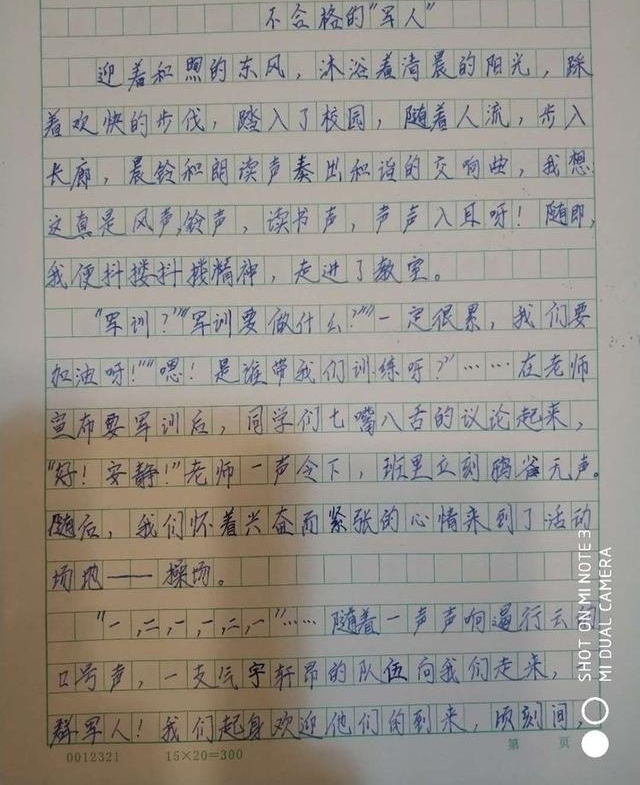 不合格的"军人"
迎着和煦的东风，沐浴着清晨的阳光，踩
着欢快的步伐，踏入了校园，随着人流，步入
长廊，晨铃和朗读声奏出和谐的交响曲，我想
这真是风声,铃声，读书声，声声入耳呀！随即，
我便抖搂抖搂精神，走进了教室。
"军训？""军训要做什么？""一定很累，我们要
加油呀！""嗯！是谁带我们训练呀？"……在老师
宣布要军训后，同学们七嘴八舌的议论起来，
"好！安静！"老师一声令下，班里立刻鸦雀无声。
随后，我们怀着兴奋而紧张的心情来到了活动
场地——操场。
"一,二,一,一,二,一"……随着一声声响遏行云的
口号声，一支气宇轩昂的队伍向我们走来，
群军人！我们起身欢迎他们的到来，顷刻间，
0012321 15×20=300 第 页
SHOT ON MI NOTE 3
MI DUAL CAMERA